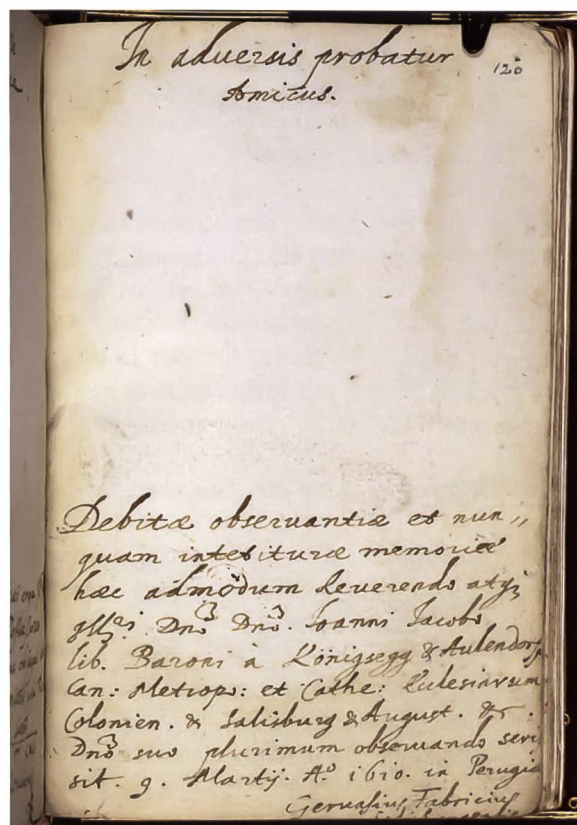 In adversis probatur
120
Amicus.
Debitæ observantiæ et nun„
quam interituræ memoriæ
hæc admodum Reverendo atq;
Dno Dno. Ioanni Iacobo
lib. Baroni à Königsegg & Aulendorf
Can: Metrop: et Cathe: Ecclesiarum
Colonien. & Salisburg & August. &c.
Dno suo plurimum observando scrip
sit. 9. Martij. Aº 1610. in Perugia
Gervasius Fabricius